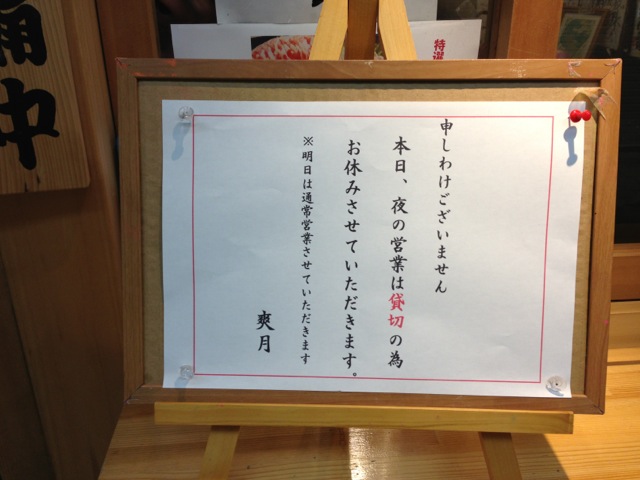 申しわけございません
本日、夜の営業は貸切の為
お休みさせていただきます。
※明日は通常営業させていただきます
爽月
特選
中